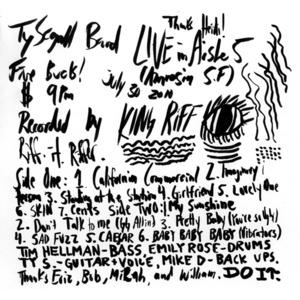 Ty Segall Band Thanks Heidi!
LIVE in Aisle 5
Five Bucks! (Amnesia S.F)
$ 9pm July 30 2011
Recorded by KING RIFF
Riff-A-Raffer
Side One: 1. California Commercial 2. Imaginary
Person 3. Standing at the Station 4. Girlfriend 5. Lovely One
6. SKIN 7. Cents Side Two: 1. My Sunshine
2. Don't Talk to me (GG Allin) 3. Pretty Baby
4. SAD FUZZ 5. CAESAR 6. BABY BABY BABY (Vibrators)
TIM HELLMAN-BASS EMILY ROSE-DRUMS
TY S.-GUITAR+VOICE, MIKE D-BACK UPS.
Thanks Eric, Bob, Mikah, and William. DO IT.